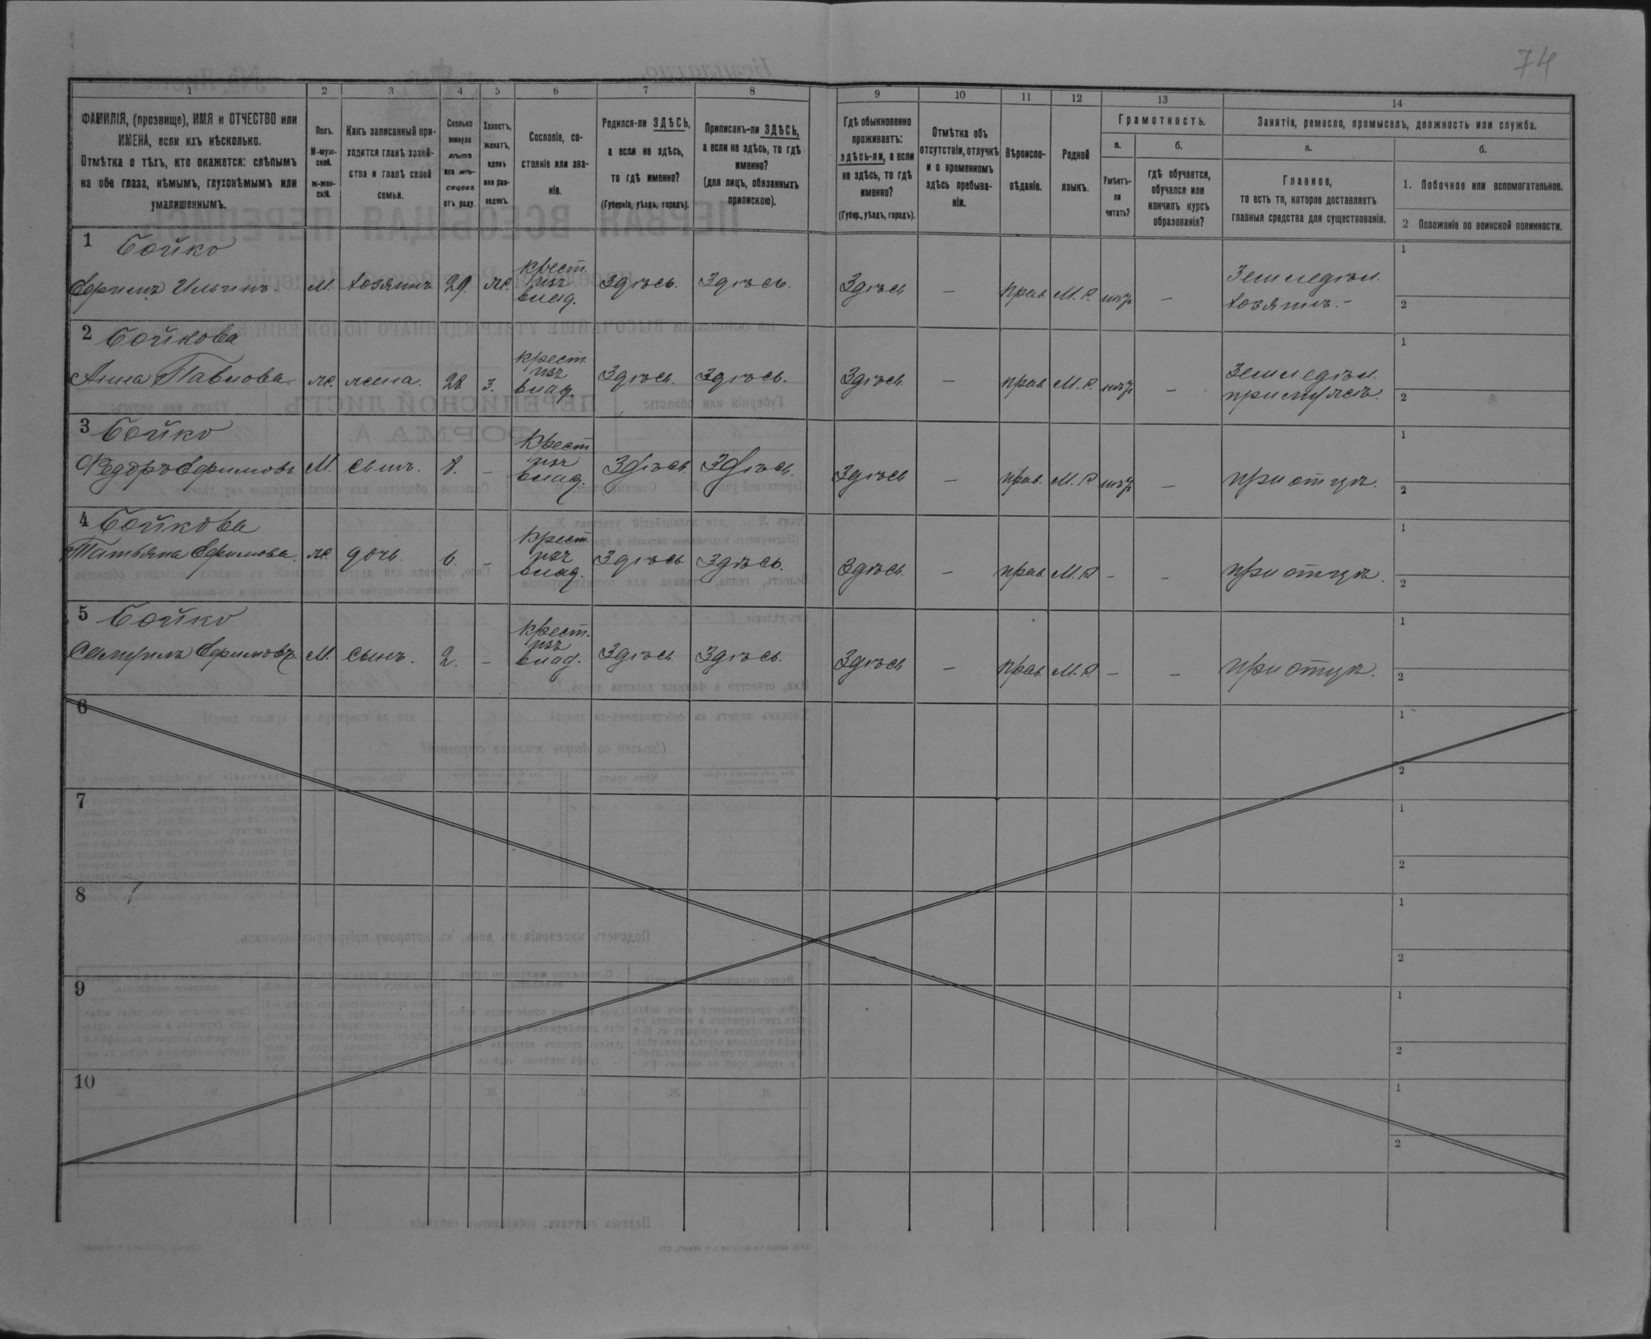 74
1
2
3
4
5
6
7
8
9
10
11
12
13
14
ФАМИЛІЯ, (прозвище), ИМЯ и ОТЧЕСТВО или
ИМЕНА, если ихъ нѣсколько.
Отмѣтка о тѣхъ, кто окажется: слѣпымъ
на оба глаза, нѣмымъ, глухонѣмымъ или
умалишеннымъ.
Полъ.
М-муж-
ской.
ж-жен-
скій.
Какъ записанный при-
ходится главѣ хозяй-
ства и главѣ своей
семьи.
Сколько
минуло
лѣтъ
или мѣ-
сяцевъ
отъ роду.
Холостъ,
женатъ,
вдовъ
или раз-
веденъ.
Сословіе, со-
стояніе или зва-
ніе.
Родился-ли ЗДѢСЬ,
а если не здѣсь,
то гдѣ именно?
(Губернія, уѣздъ, городъ).
Приписанъ-ли ЗДѢСЬ,
а если не здѣсь, то гдѣ
именно?
(для лицъ, обязанныхъ
припискою).
Гдѣ обыкновенно
проживаетъ:
здѣсь-ли, а если
не здѣсь, то гдѣ
именно?
(Губер., уѣздъ, городъ).
Отмѣтка объ
отсутствіи, отлучкѣ
и о временномъ
здѣсь пребыва-
ніи.
Вѣроиспо-
вѣданіе.
Родной
языкъ.
Грамотность.
а.
Умѣетъ-
ли
читать?
б.
гдѣ обучается,
обучался или
кончилъ курсъ
образованія?
Занятіе, ремесло, промыселъ, должность или служба.
а.
Главное,
то есть то, которое доставляетъ
главныя средства для существованія.
б.
1. Побочное или вспомогательное.
2 Положеніе по воинской повинности.
1 Бойко
Ефимъ Ильинъ. М. хозяинъ 29. же. крест. изъ влад. Здѣсь. Здѣсь. Здѣсь — прав. М. Р. нѣтъ — Земледѣл. хозяинъ.— 1 2
2 Бойкова
Анна Павлова. же. жена. 28 з. крест. изъ влад. Здѣсь. Здѣсь. Здѣсь — прав. М. Р. нѣтъ — Земледѣл. при мужѣ. 1 2
3 Бойко
Ѳедоръ Ефимовъ М. сынъ. 8. – Крест. изъ влад. Здѣсь Здѣсь. Здѣсь — прав. М. Р. нѣтъ — при отцѣ. 1 2
4 Бойкова
Татьяна Ефимова. же. дочь. 6. – Крест. изъ влад. Здѣсь Здѣсь. Здѣсь. — прав. М. Р. – – при отцѣ. 1 2
5 Бойко
Самуилъ Ефимовъ. М. сынъ. 2. – крест. изъ влад. Здѣсь Здѣсь. Здѣсь — прав. М. Р. – – при отцѣ. 1 2
6 1 2
7 1 2
8 1 2
9 1 2
10 1 2